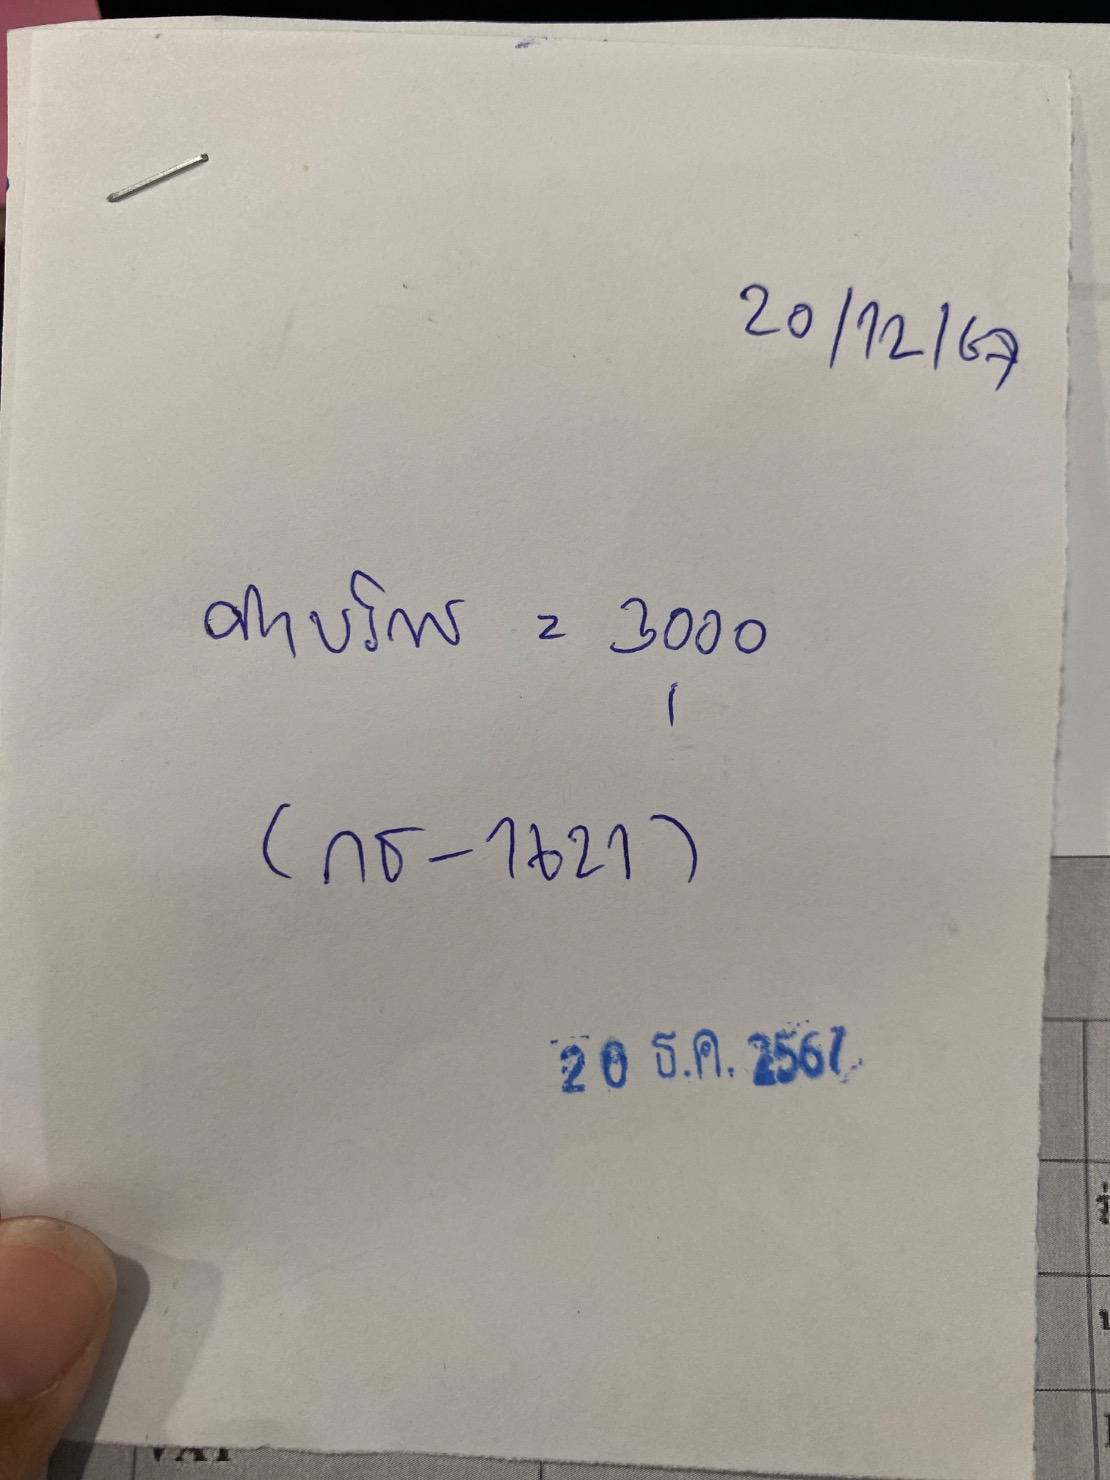 20/12/67
ค่าบริการ = 3000
(กธ-1621)
20 ธ.ค. 2567
VAT